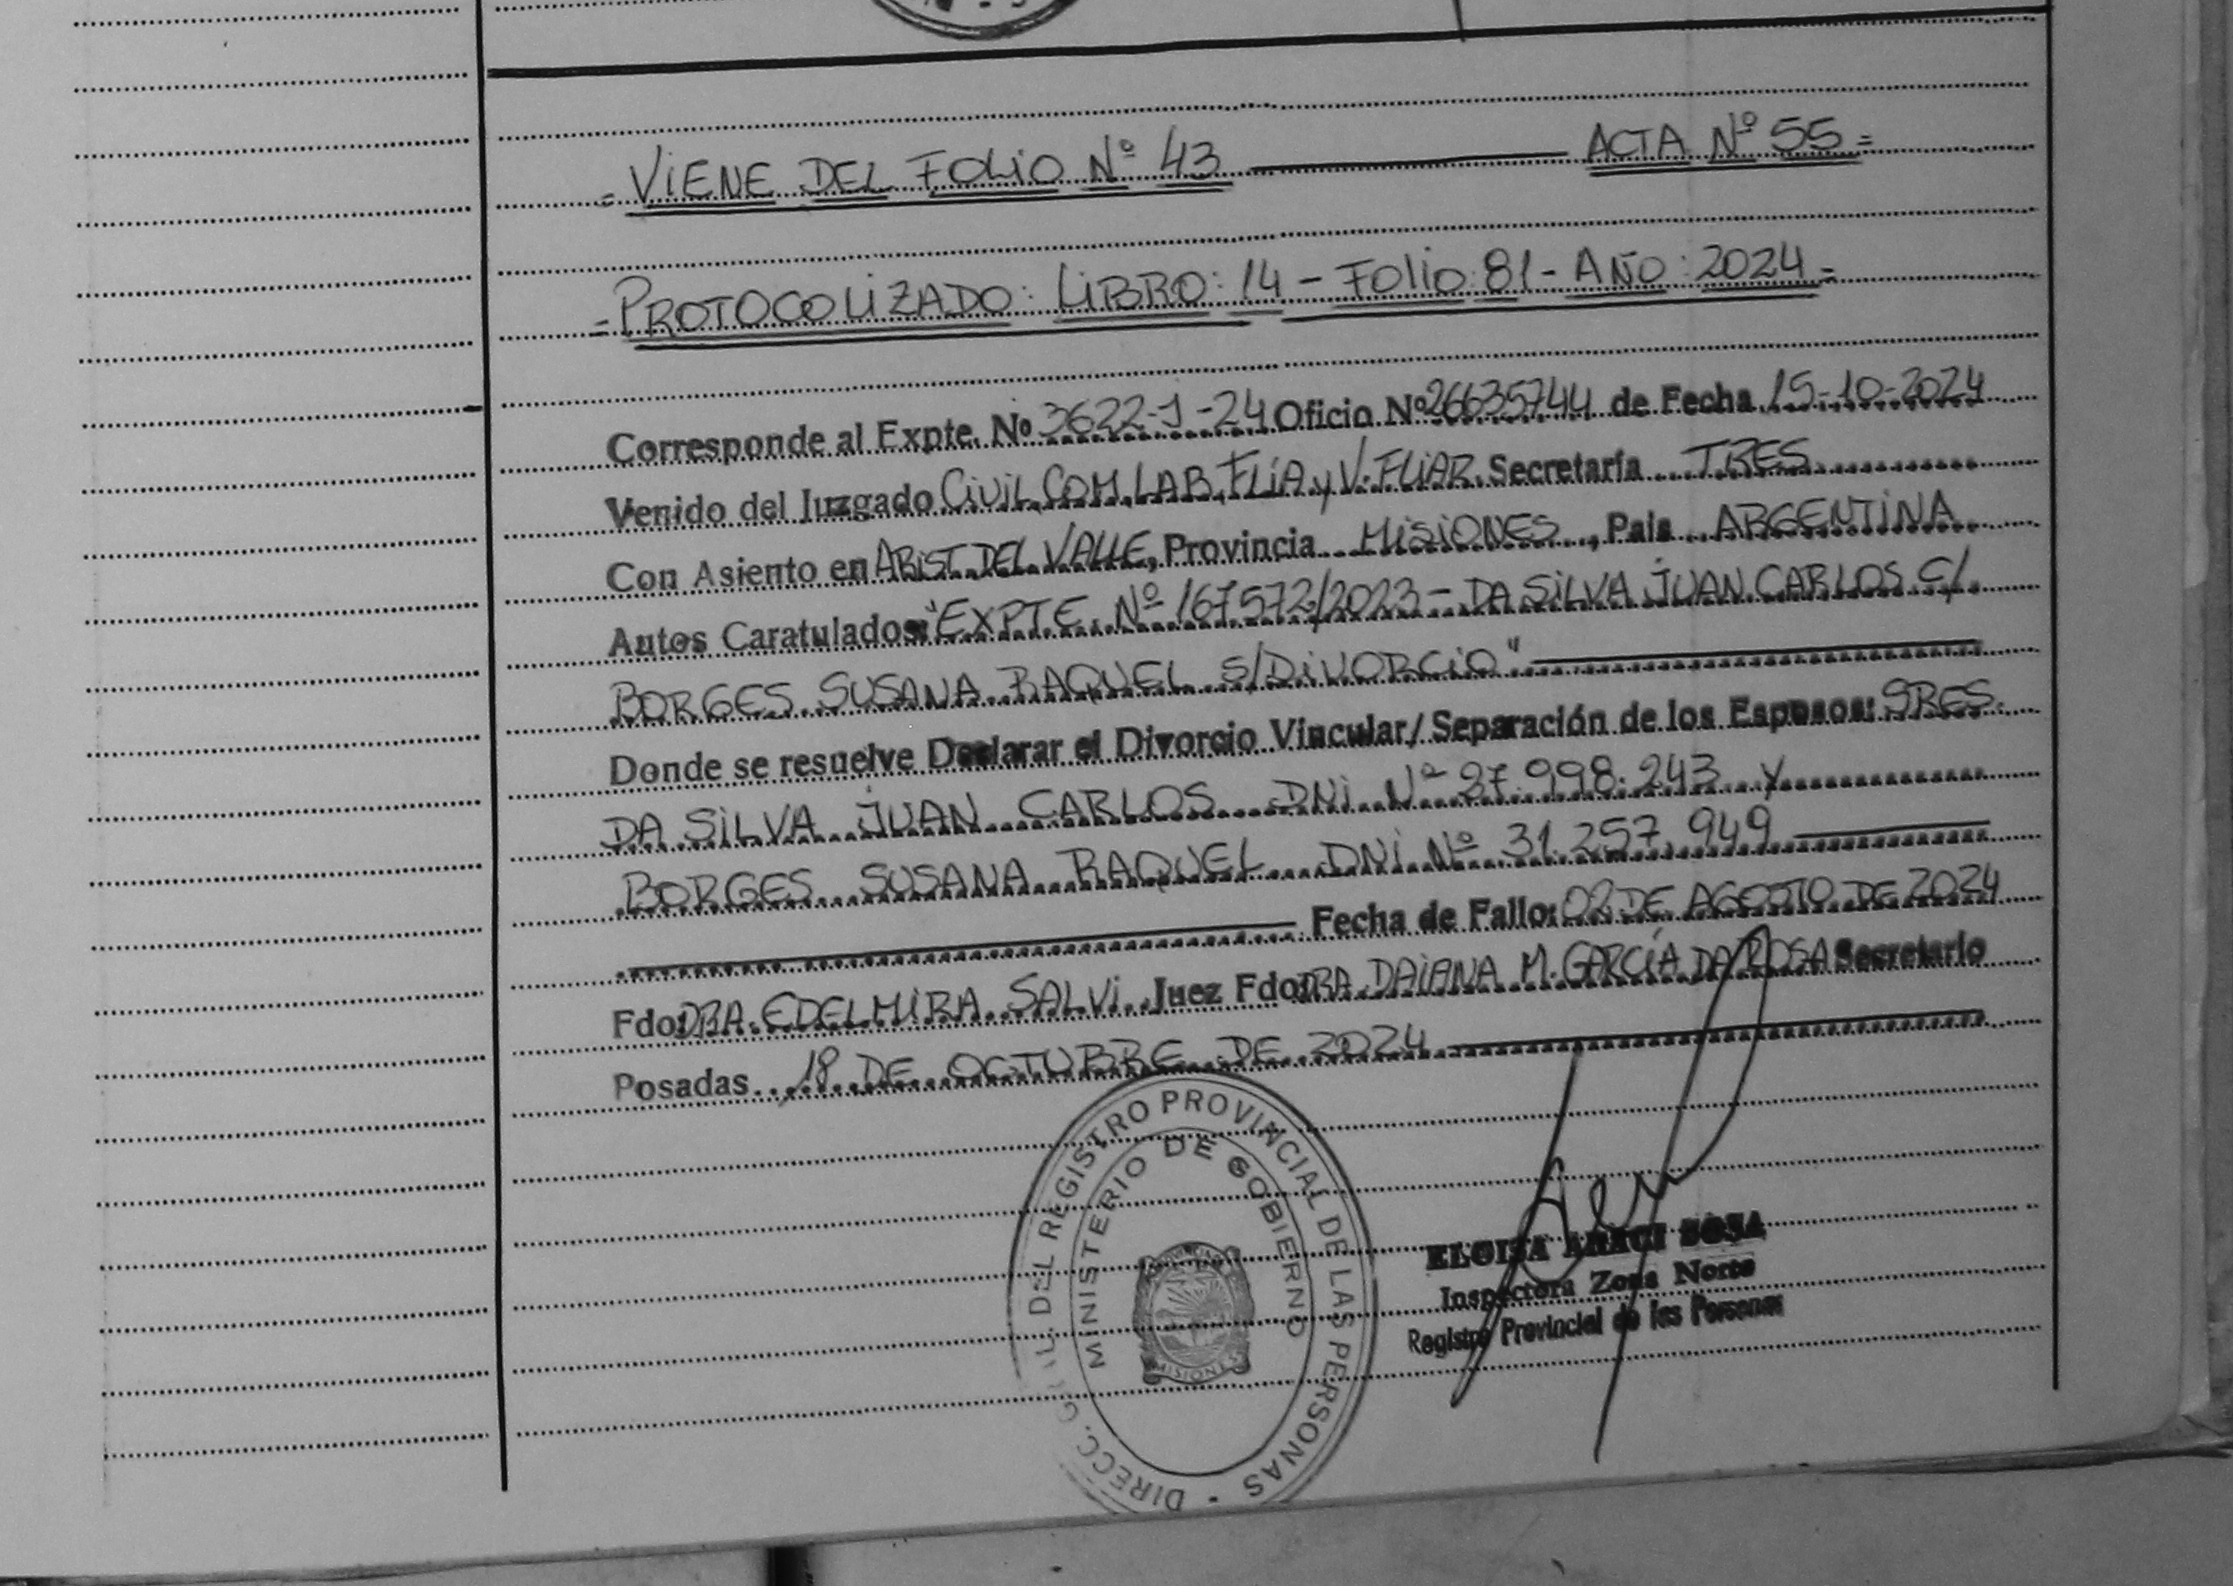 = VIENE DEL FOLIO Nº 43 ——— ACTA Nº 55 =
= PROTOCOLIZADO: LIBRO: 14 - FOLIO: 81 - AÑO: 2024 =
Corresponde al Expte. Nº 3622-J-24 Oficio Nº 26635744 de Fecha 15-10-2024
Venido del Juzgado CIVIL, COM, LAB, FLIA y V. FLIAR. Secretaría TRES
Con Asiento en ARIST. DEL VALLE, Provincia MISIONES, Pais ARGENTINA
Autos Caratulados: "EXPTE. Nº 167572/2023 - DA SILVA JUAN CARLOS C/
BORGES SUSANA RAQUEL S/DIVORCIO"
Donde se resuelve Declarar el Divorcio Vincular/Separación de los Esposos: SRES.
DA SILVA JUAN CARLOS DNI Nº 27.998.243 y
BORGES SUSANA RAQUEL DNI Nº 31.257.949
Fecha de Fallo: 02 DE AGOSTO DE 2024
Fdo: DRA. EDELMIRA SALVI Juez Fdo: DRA. DAIANA M. GARCÍA DA ROSA Secretario
Posadas 18 DE OCTUBRE DE 2024
DIRECC. GRAL. DEL REGISTRO PROVINCIAL DE LAS PERSONAS -
MINISTERIO DE GOBIERNO
MISIONES
ELOISA ARACI SOSA
Inspectora Zona Norte
Registro Provincial de las Personas